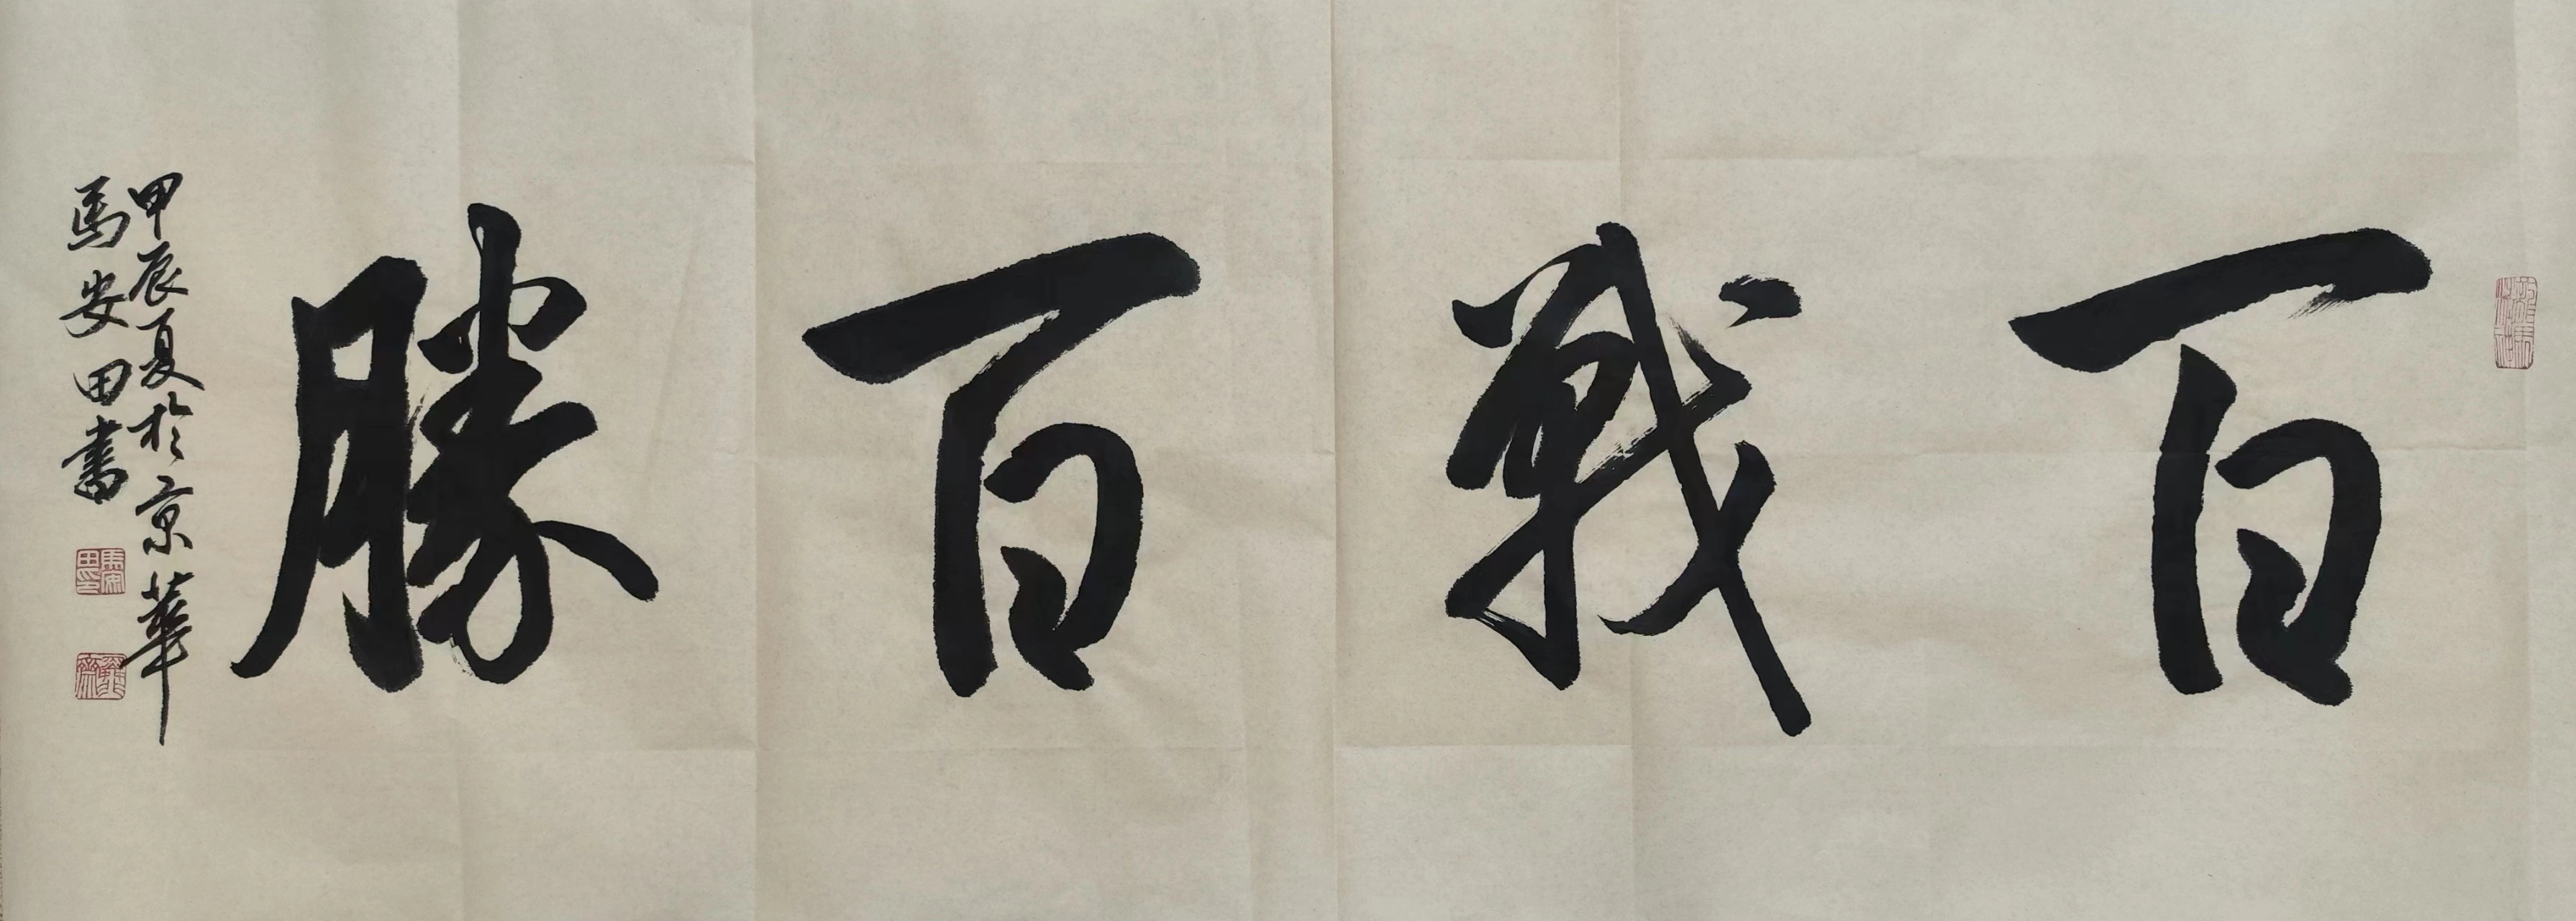 百戰百勝
甲辰夏於京華
馬安田書
馬安田印